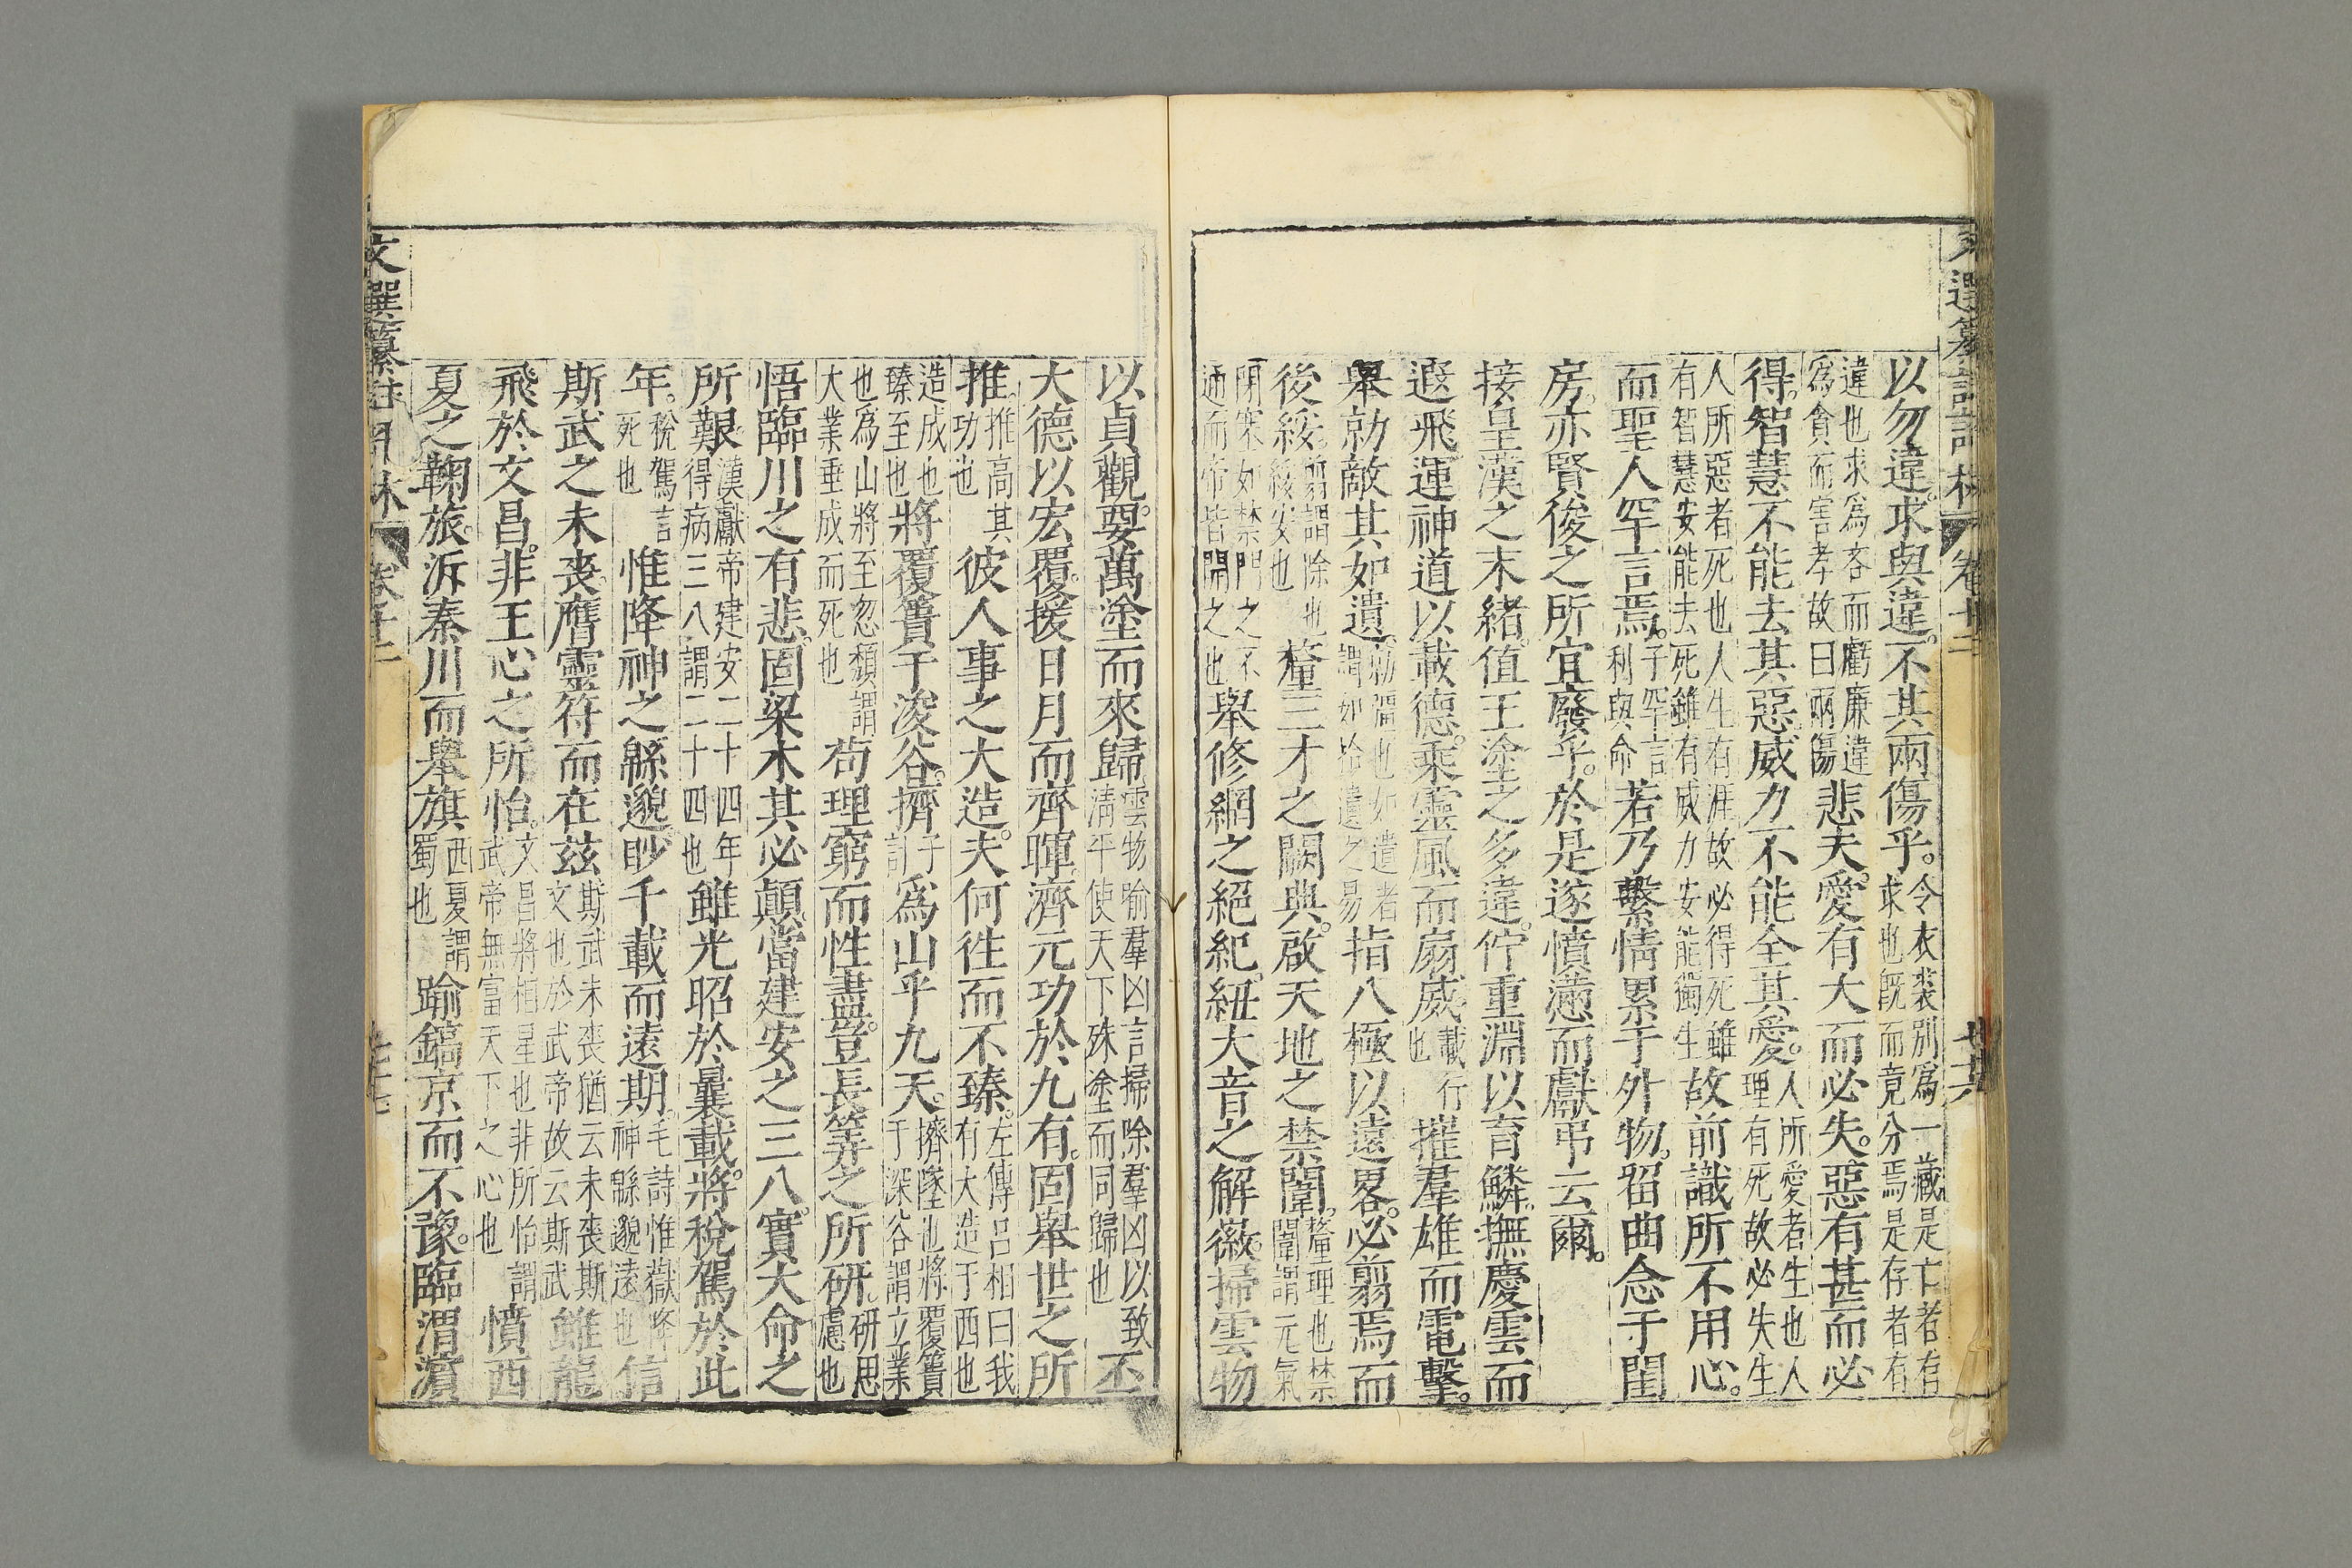 文選纂註評林 卷十二 廿六
以勿違。求與違。不其兩傷乎。令衣裘別爲一藏是亡者有求也旣而竟分焉是存者有
違也求爲吝而虧廉違爲貪而害孝故曰兩傷悲夫。愛有大而必失。惡有甚而必
得。智慧不能去其惡。威力不能全其愛。人所愛者生也人理有死故必失生
人所惡者死也人生有涯故必得死雖有智慧安能去死雖有威力安能獨生故前識所不用心。
而聖人罕言焉。子罕言利與命若乃繫情累于外物。畱曲念于閨
房。亦賢俊之所宜廢乎。於是遂憤懣而獻弔云爾。
接皇漢之末緒。值王塗之多違。佇重淵以育鱗。撫慶雲而
遐飛。運神道以載德。乘靈風而扇威。載行也摧羣雄而電擊。
舉勍敵其如遺。勍彊也如遺者謂如拾遺之易指八極以遠畧。必翦焉而
後綏。翦謂除也綏安也釐三才之闕典。啟天地之禁闈。釐理也禁闈謂元氣
閉塞如禁門之不通而帝皆開之也舉修網之絕紀。紐大音之解徽。掃雲物
以貞觀。要萬塗而來歸。雲物喻羣凶言掃除羣凶以致淸平使天下殊塗而同歸也丕
大德以宏覆。援日月而齊暉。濟元功於九有。固舉世之所
推。推高其功也彼人事之大造。夫何徃而不臻。左傳呂相曰我有大造于西也
造成也臻至也將覆簣于浚谷。擠子計爲山乎九天。擠墜也將覆簣于深谷謂立業
也爲山將至忽頹謂大業垂成而死也苟理窮而性盡。豈長筭之所硏。硏思慮也
悟臨川之有悲。固梁木其必顛。當建安之三八。實大命之
所艱。漢獻帝建安二十四年得病三八謂二十四也雖光昭於曩載。將稅駕於此
年。稅駕言死也惟降神之緜邈。眇千載而遠期。毛詩惟嶽降神緜邈遠也信
斯武之未喪。膺靈符而在茲斯武未喪猶云未喪斯文也於武帝故云斯武雖龍
飛於文昌。非王心之所怡。文昌將相星也非所怡謂武帝無富天下之心也憤西
夏之鞠旅。泝秦川而舉旗西夏謂蜀也踰鎬京而不豫。臨渭濵
文選纂註評林 卷十二 廿七